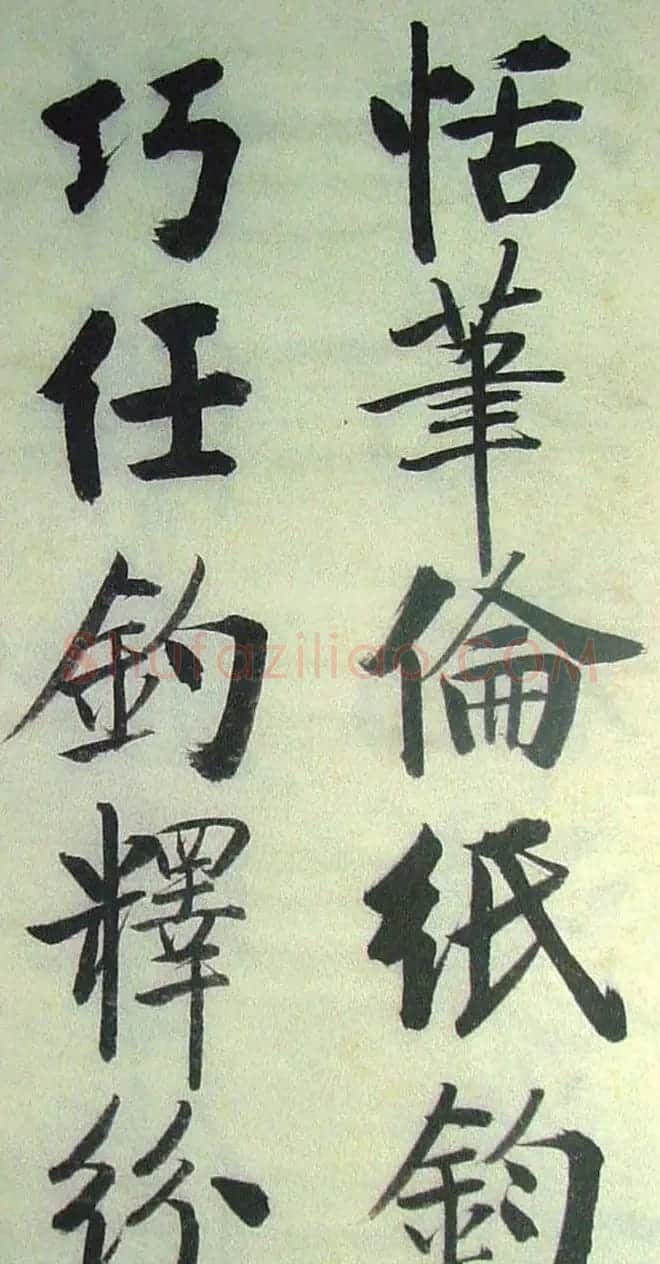 恬筆倫紙鈞
巧任釣釋紛
Shufaziliao.COM